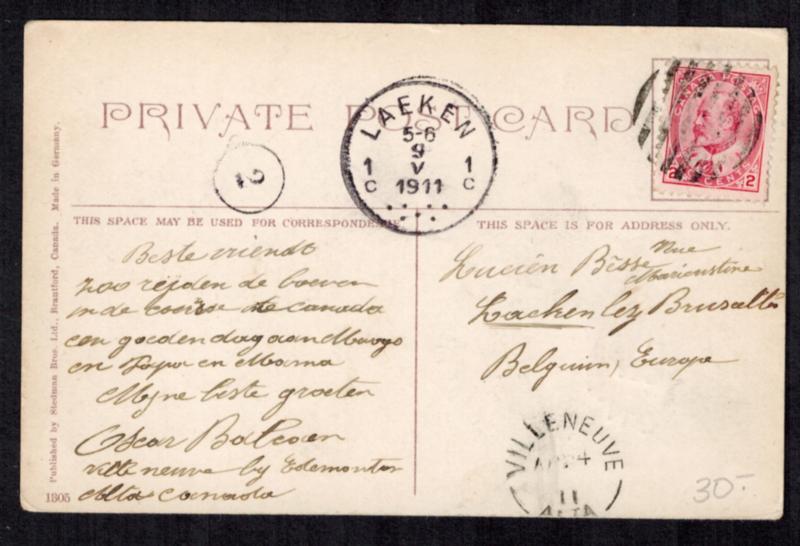 PRIVATE POST CARD
CANADA POSTAGE
2 CENTS 2
LAEKEN
5-6
9
V
1911
1 C
1 C
12
THIS SPACE MAY BE USED FOR CORRESPONDENCE
THIS SPACE IS FOR ADDRESS ONLY.
Beste vriendt
zoo rijden de boeren
in de coorse de Canada
een goeden dag aan
en Papa en Mama
Mijne beste groeten
Oscar
Villeneuve by Edemonton
Alta Canada
Lucien Bisse Rue
Laeken lez Bruxelles
Belguim, Europe
VILLENEUVE
AP 24
11
ALTA
30-
Published by Stedman Bros. Ltd., Brantford, Canada. Made in Germany.
1305